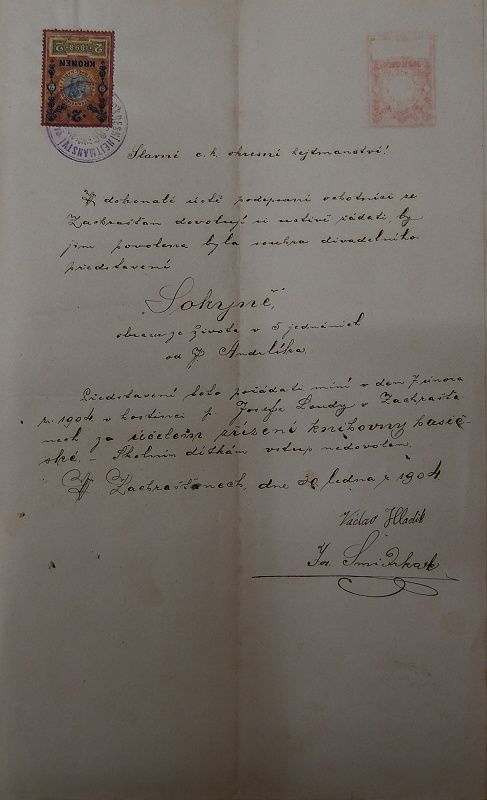 2 1898 2
KRONEN
2
OKRESNÍ HEJTMANSTVÍ
Slavné c. k. okresní hejtmanství!
V dokonalé úctě podepsaní ochotníci ze
Zachrašťan dovolují si uctivě žádati, by
jim povolena byla souhra divadelního
představení
„Sokyně“,
obraz ze života v 5 jednáních
od J. Andrlíka.
Představení toto pořádati míní v den 7. února
r. 1904 v hostinci p. Josefa Loudy v Zachrašťa-
nech za účelem zřízení knihovny hasič-
ské. – Školním dítkám vstup nedovolen.
V Zachrašťanech, dne 30. ledna r. 1904
Václav Hladík